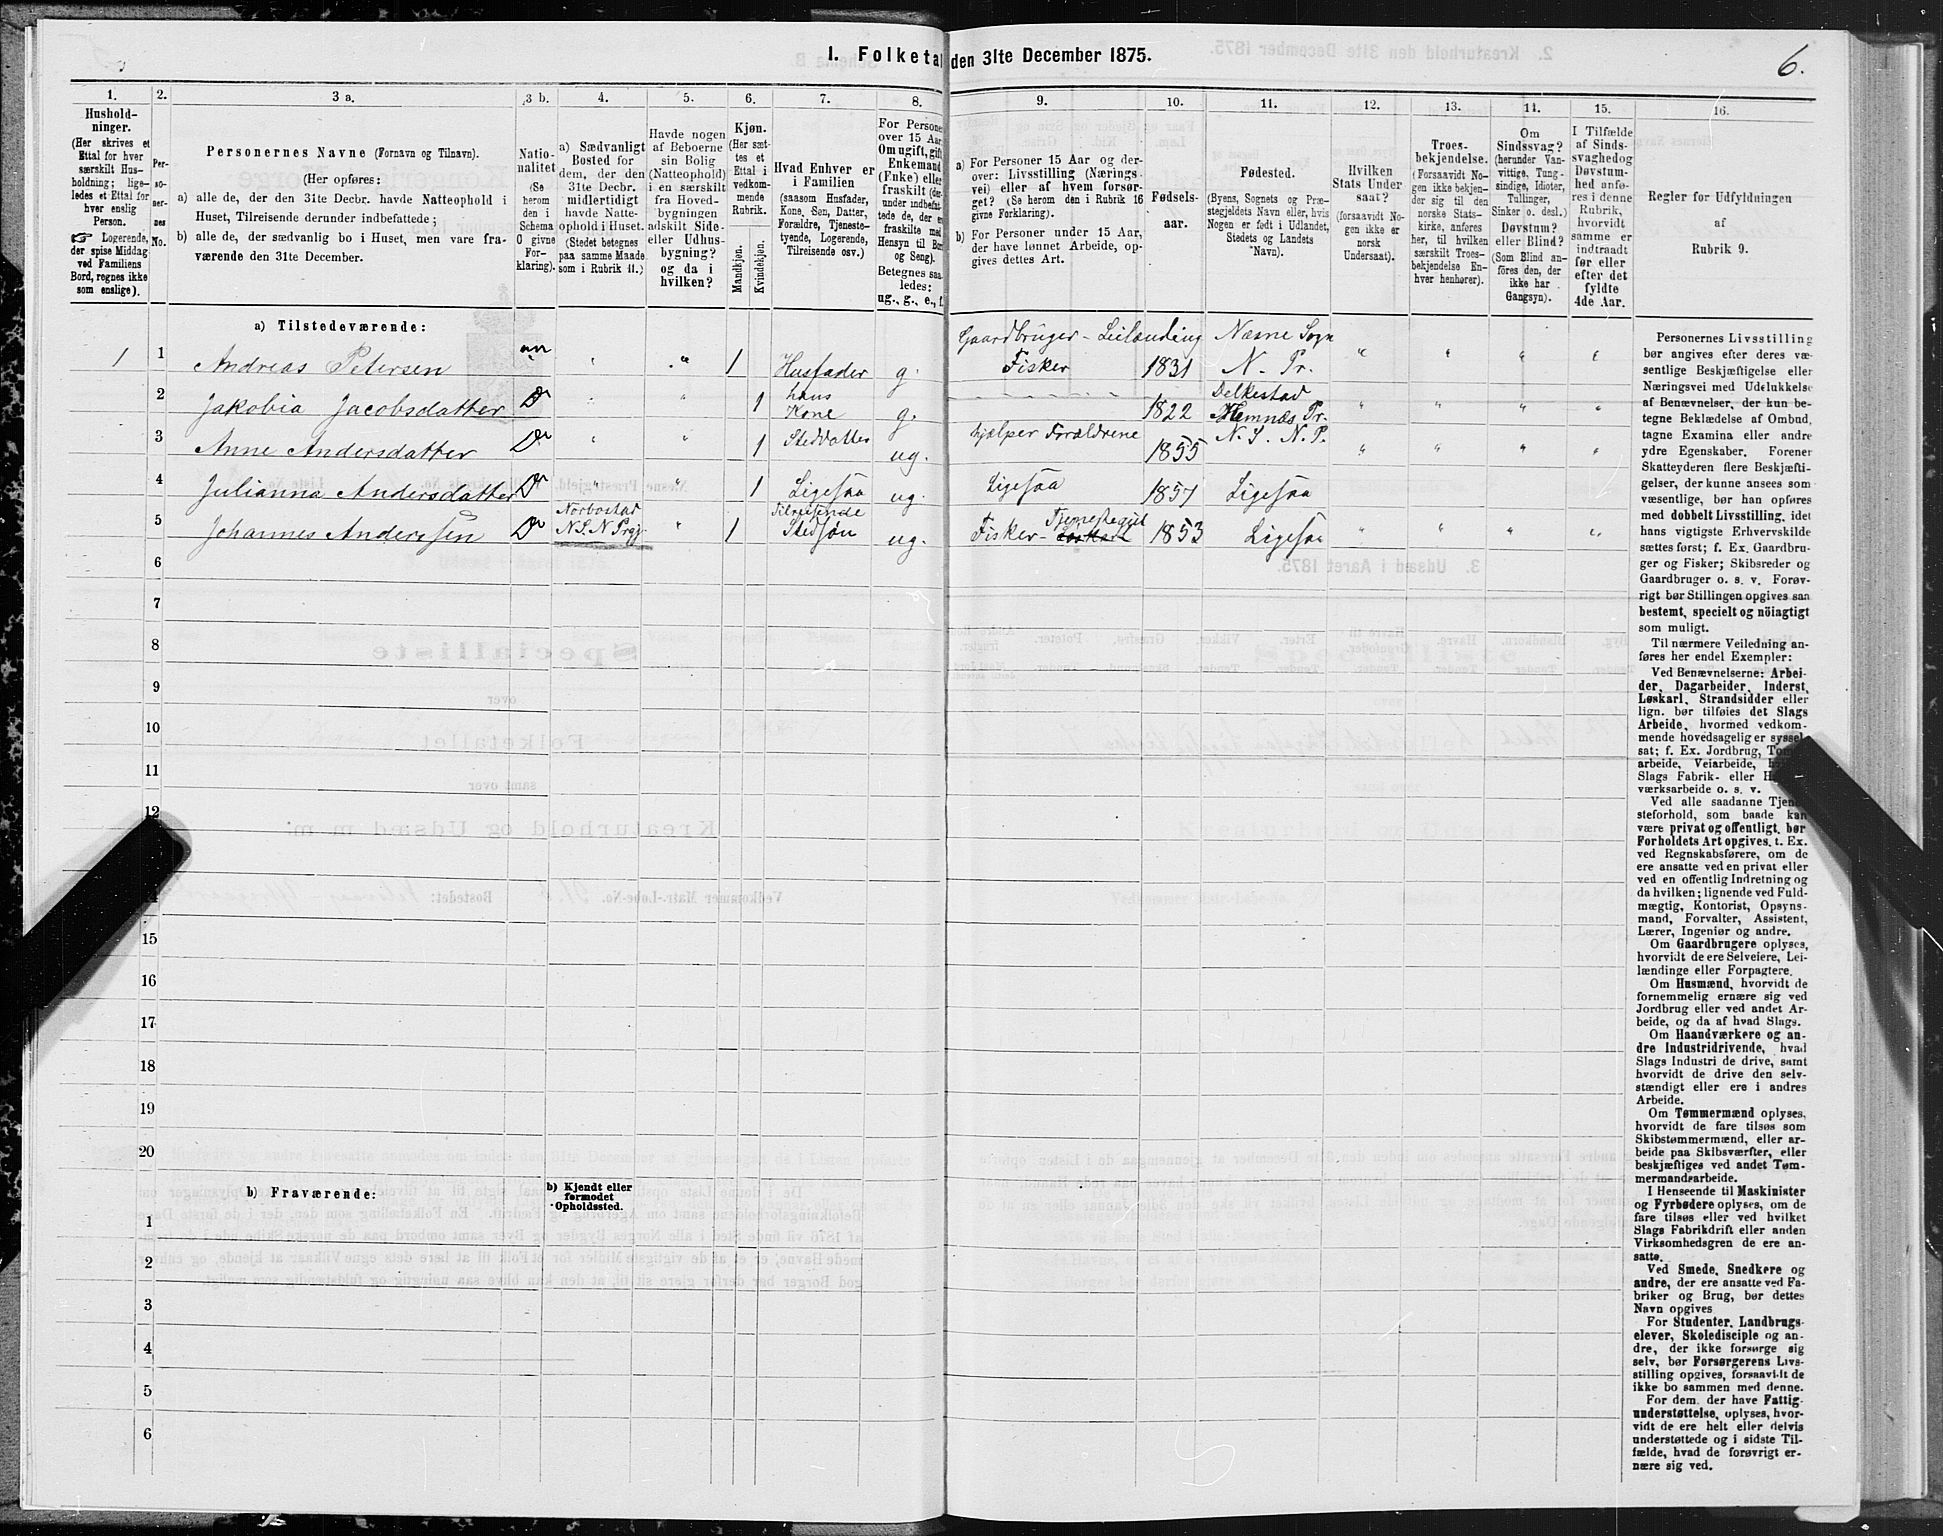 I. Folketal den 31te December 1875.
6.
1.
Husholdninger.
(Her skrives et
Ettal for hver
særskilt Husholdning;
ligeledes et Ettal for
hver enslig
Person.
Logerende,
der spise Middag
ved Familiens
Bord, regnes ikke
som enslige).
2.
Personernes
No.
3 a.
Personernes Navne (Fornavn og Tilnavn).
(Her opføres:
a) alle de, der den 31te Decbr. havde Natteophold i
Huset, Tilreisende derunder indbefattede;
b) alle de, der sædvanlig bo i Huset, men vare fraværende
den 31te December.
3 b.
Nationalitet
(Se
herom
den i
Schema
O givne
Forklaring).
4.
a) Sædvanligt
Bosted for
dem, der den
31te Decbr.
midlertidigt
havde Natteophold
i Huset.
(Stedet betegnes
paa samme Maade
som i Rubrik 11.)
5.
Havde nogen
af Beboerne
sin Bolig
(Natteophold)
i en særskilt
fra Hovedbygningen
adskilt Side-
eller Udhusbygning?
og da i
hvilken?
6.
Kjøn.
(Her sættes
et
Ettal i
vedkommende
Rubrik.
Mandkjøn.
Kvindekjøn.
7.
Hvad Enhver er
i Familien
(saasom Husfader,
Kone, Søn, Datter,
Forældre, Tjenestetyende,
Logerende,
Tilreisende osv.)
8.
For Personer
over 15 Aar
Om ugift, gift
Enkemand
(Enke) eller
fraskilt
Betegnes saaledes:
ug., g., e., f.
9.
a) For Personer 15 Aar og derover:
Livsstilling (Næringsvei)
eller af hvem forsørget?
(Se herom den i Rubrik 16
givne Forklaring).
b) For Personer under 15 Aar,
der have lønnet Arbeide, opgives
dettes Art.
10.
Fødselsaar.
11.
Fødested.
(Byens, Sognets og Præstegjeldets
Navn eller, hvis
Nogen er født i Udlandet,
Stedets og Landets
Navn).
12.
Hvilken
Stats Undersaat?
(forsaavidt Nogen
ikke er
norsk
Undersaat).
13.
Troesbekjendelse.
(Forsaavidt Nogen
ikke bekjender
sig til den
norske Statskirke,
anføres
her, til hvilken
særskilt Troesbekjendelse
Enhver
henhører).
14.
Om
Sindssvag?
(herunder Vanvittige,
Tungsindige,
Idioter,
Tullinger,
Sinker o. desl.)
Døvstum?
eller Blind?
(Som Blind anføres
den, der
ikke har
Gangsyn).
15.
I Tilfælde
af Sindssvaghed
og
Døvstumhed
anføres
i denne
Rubrik,
hvorvidt
samme er
indtraadt
før eller
efter det
fyldte
4de Aar.
16.
Regler for Udfyldningen
af
Rubrik 9.
a) Tilstedeværende:
1 1 Andreas Petersen nn " " 1 Husfader g. Gaardbruger - Leilænding Fisker 1831 Næsne Sogn N. Pr. " " " "
2 Jakobia Jacobsdatter Do " " 1 hans Kone g. 1822 Delkestad Hemnæs Pr. " " " "
3 Anne Andersdatter Do " " 1 Steddatter ug. hjælper Forældrene 1855 N. S. N. P. " " " "
4 Julianna Andersdatter Do " " 1 Ligesaa ug. Ligesaa 1857 Ligesaa
5 Johannes Anderssen Do Norbostad N S. N Prgj " 1 Tilreisende Stedsøn ug. Fisker- Tjenestegut 1853 Ligesaa " " " "
6
7
8
9
10
11
12
14
15
16
17
18
19
20
b) Fraværende:
b) Kjendt eller
formodet
Opholdssted.
1
2
3
4
5
6
Personernes Livsstilling
bør angives efter deres væsentlige
Beskjæftigelse eller
Næringsvei med Udelukkelse
af Benævnelser, der kun betegne
Beklædelse af Ombud,
tagne Examina eller andre
ydre Egenskaber. Forener
Skatteyderen flere Beskjæftigelser,
der kunne ansees som
væsentlige, bør han opføres
med dobbelt Livsstilling, idet
hans vigtigste Erhvervskilde
sættes først; f. Ex. Gaardbruger
og Fisker; Skibsreder og
Gaardbruger o. s. v. Forøvrigt
bør Stillingen opgives saa
bestemt, specielt og nöiagtigt
som muligt.
Til nærmere Veiledning anføres
her endel Exempler:
Ved Benævnelserne: Arbeider,
Dagarbeider, Inderst,
Løskarl, Strandsidder eller
lign. bør tilføies det Slags
Arbeide, hvormed vedkommende
hovedsagelig er sysselsat;
f. Ex. Jordbrug,
arbeide, Veiarbeide,
Slags Fabrik- eller
værksarbeide o. s. v.
Ved alle saadanne Tjenesteforhold,
som baade kan
være privat og offentligt, bør
Forholdets Art opgives, t. Ex.
ved Regnskabsførere, om de
ere ansatte ved en privat eller
ved en offentlig Indretning og
da hvilken; lignende ved Fuldmægtig,
Kontorist, Opsynsmand,
Forvalter, Assistent,
Lærer, Ingeniør og andre.
Om Gaardbrugere oplyses,
hvorvidt de ere Selveiere, Leilændinge
eller Forpagtere.
Om Husmænd, hvorvidt de
fornemmelig ernære sig ved
Jordbrug eller ved andet Arbeide,
og da af hvad Slags.
Om Haandværkere og andre
Industridrivende, hvad
Slags Industri de drive, samt
hvorvidt de drive den selvstændigt
eller ere i andres
Arbeide.
Om Tømmermænd oplyses,
hvorvidt de fare tilsøs som
Skibstømmermænd, eller arbeide
paa Skibsværfter, eller
beskjæftiges ved andet Tømmermandsarbeide.
I Henseende til Maskinister
og Fyrbødere oplyses, om de
fare tilsøs eller ved hvilket
Slags Fabrikdrift eller anden
Virksomhedsgren de ere ansatte.
Ved Smede, Snedkere og
andre, der ere ansatte ved Fabriker
og Brug, bør dettes
Navn opgives
For Studenter, Landbrugselever,
Skoledisciple og andre,
der ikke forsørge sig
selv, bør Forsørgerens Livsstilling
opgives, forsaavidt de
ikke bo sammen med denne.
For dem, der have Fattigunderstøttelse,
oplyses, hvorvidt
de ere helt eller delvis
understøttede og i sidste Tilfælde,
hvad de forøvrigt ernære
sig ved.